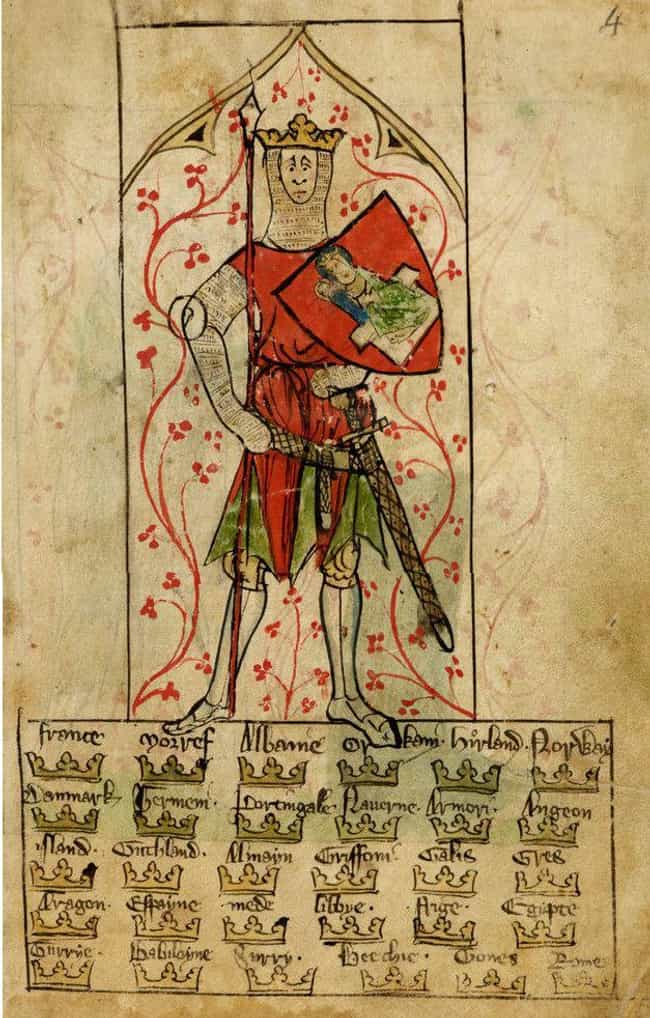 4
france Norref Albanie hirland. Norway
Danmark hermeni. Portingale Nauerne. Armori. Angeon
island. Guthland. Almayn Griffoni Galis Gres
Aragon. Espayne mede libbye. Frige. Egipte
Surrye. Babiloyne Turry. Gones Rome